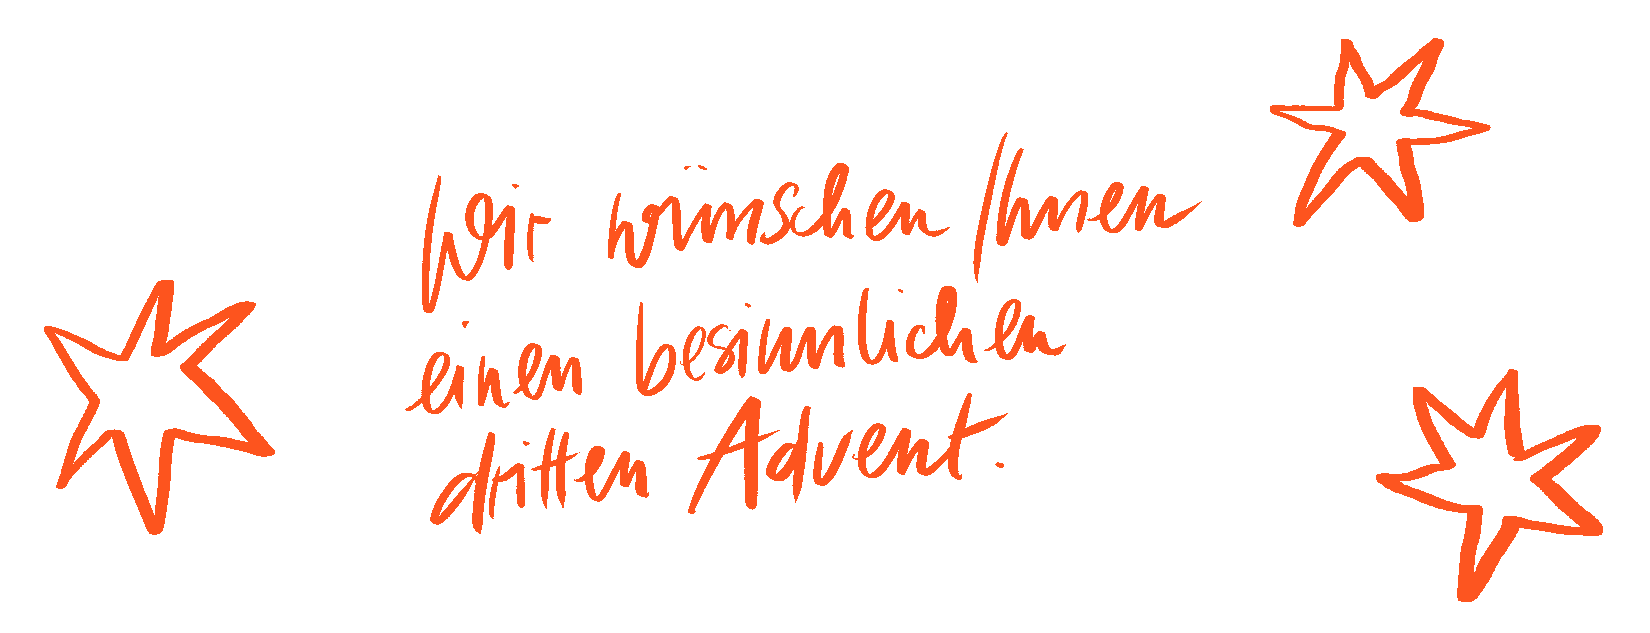 Wir wünschen Ihnen
einen besinnlichen
dritten Advent.